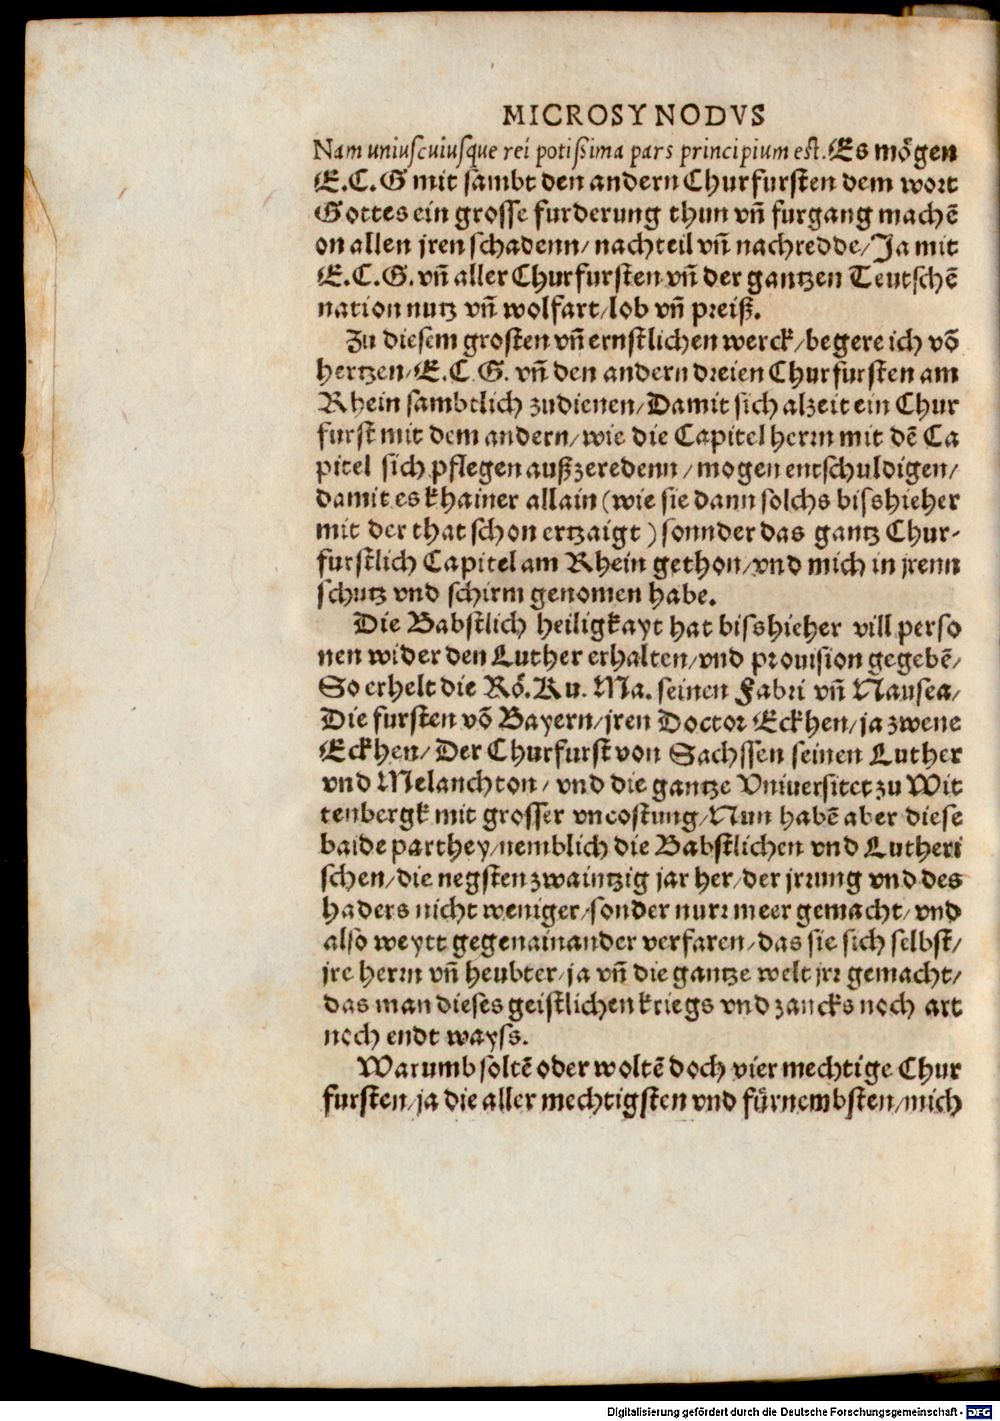 MICROSYNODVS
Nam uniuſcuiuſque rei potiſsima pars principium est. Es mögen
E.C.G mit sambt den andern Churfursten dem wort
Gottes ein grosse furderung thun vñ furgang machē
on allen jren schadenn/ nachteil vñ nachredde/ Ja mit
E.C.G. vñ aller Churfursten vñ der gantzen Teutschē
nation nutz vñ wolfart/ lob vñ preiß.
Zu diesem grosten vñ ernstlichen werck/ begere ich vō
hertzen/ E.C.G. vñ den andern dreien Churfursten am
Rhein sambtlich zudienen/ Damit sich alzeit ein Chur
furst mit dem andern/ wie die Capitel herrn mit dē Ca
pitel sich pflegen außzeredenn/ mogen entschuldigen/
damit es khainer allain (wie sie dann solchs bisshieher
mit der that schon ertzaigt) sonnder das gantz Chur-
furstlich Capitel am Rhein gethon/ vnd mich in jrenn
schutz vnd schirm genomen habe.
Die Babstlich heiligkayt hat bisshieher vill perso
nen wider den Luther erhalten/ vnd prouision gegebē/
So erhelt die Rö. Ku. Ma. seinen Fabri vñ Nausea/
Die fursten vō Bayern/ jren Doctor Eckhen/ ja zwene
Eckhen/ Der Churfurst von Sachssen seinen Luther
vnd Melanchton/ vnd die gantze Vniuersitet zu Wit
tenbergk mit grosser vncostung/ Nun habē aber diese
baide parthey/ nemblich die Babstlichen vnd Lutheri
schen/ die negsten zwaintzig jar her/ der jrrung vnd des
haders nicht weniger/ sonder nurr meer gemacht/ vnd
also weytt gegenainander verfaren/ das sie sich selbst/
jre herrn vñ heubter/ ja vñ die gantze welt jrr gemacht/
das man dieses geistlichen kriegs vnd zancks noch art
noch endt wayss.
Warumb soltē oder woltē doch vier mechtige Chur
fursten/ ja die aller mechtigsten vnd fürnembsten/ mich
Digitalisierung gefördert durch die Deutsche Forschungsgemeinschaft - DFG